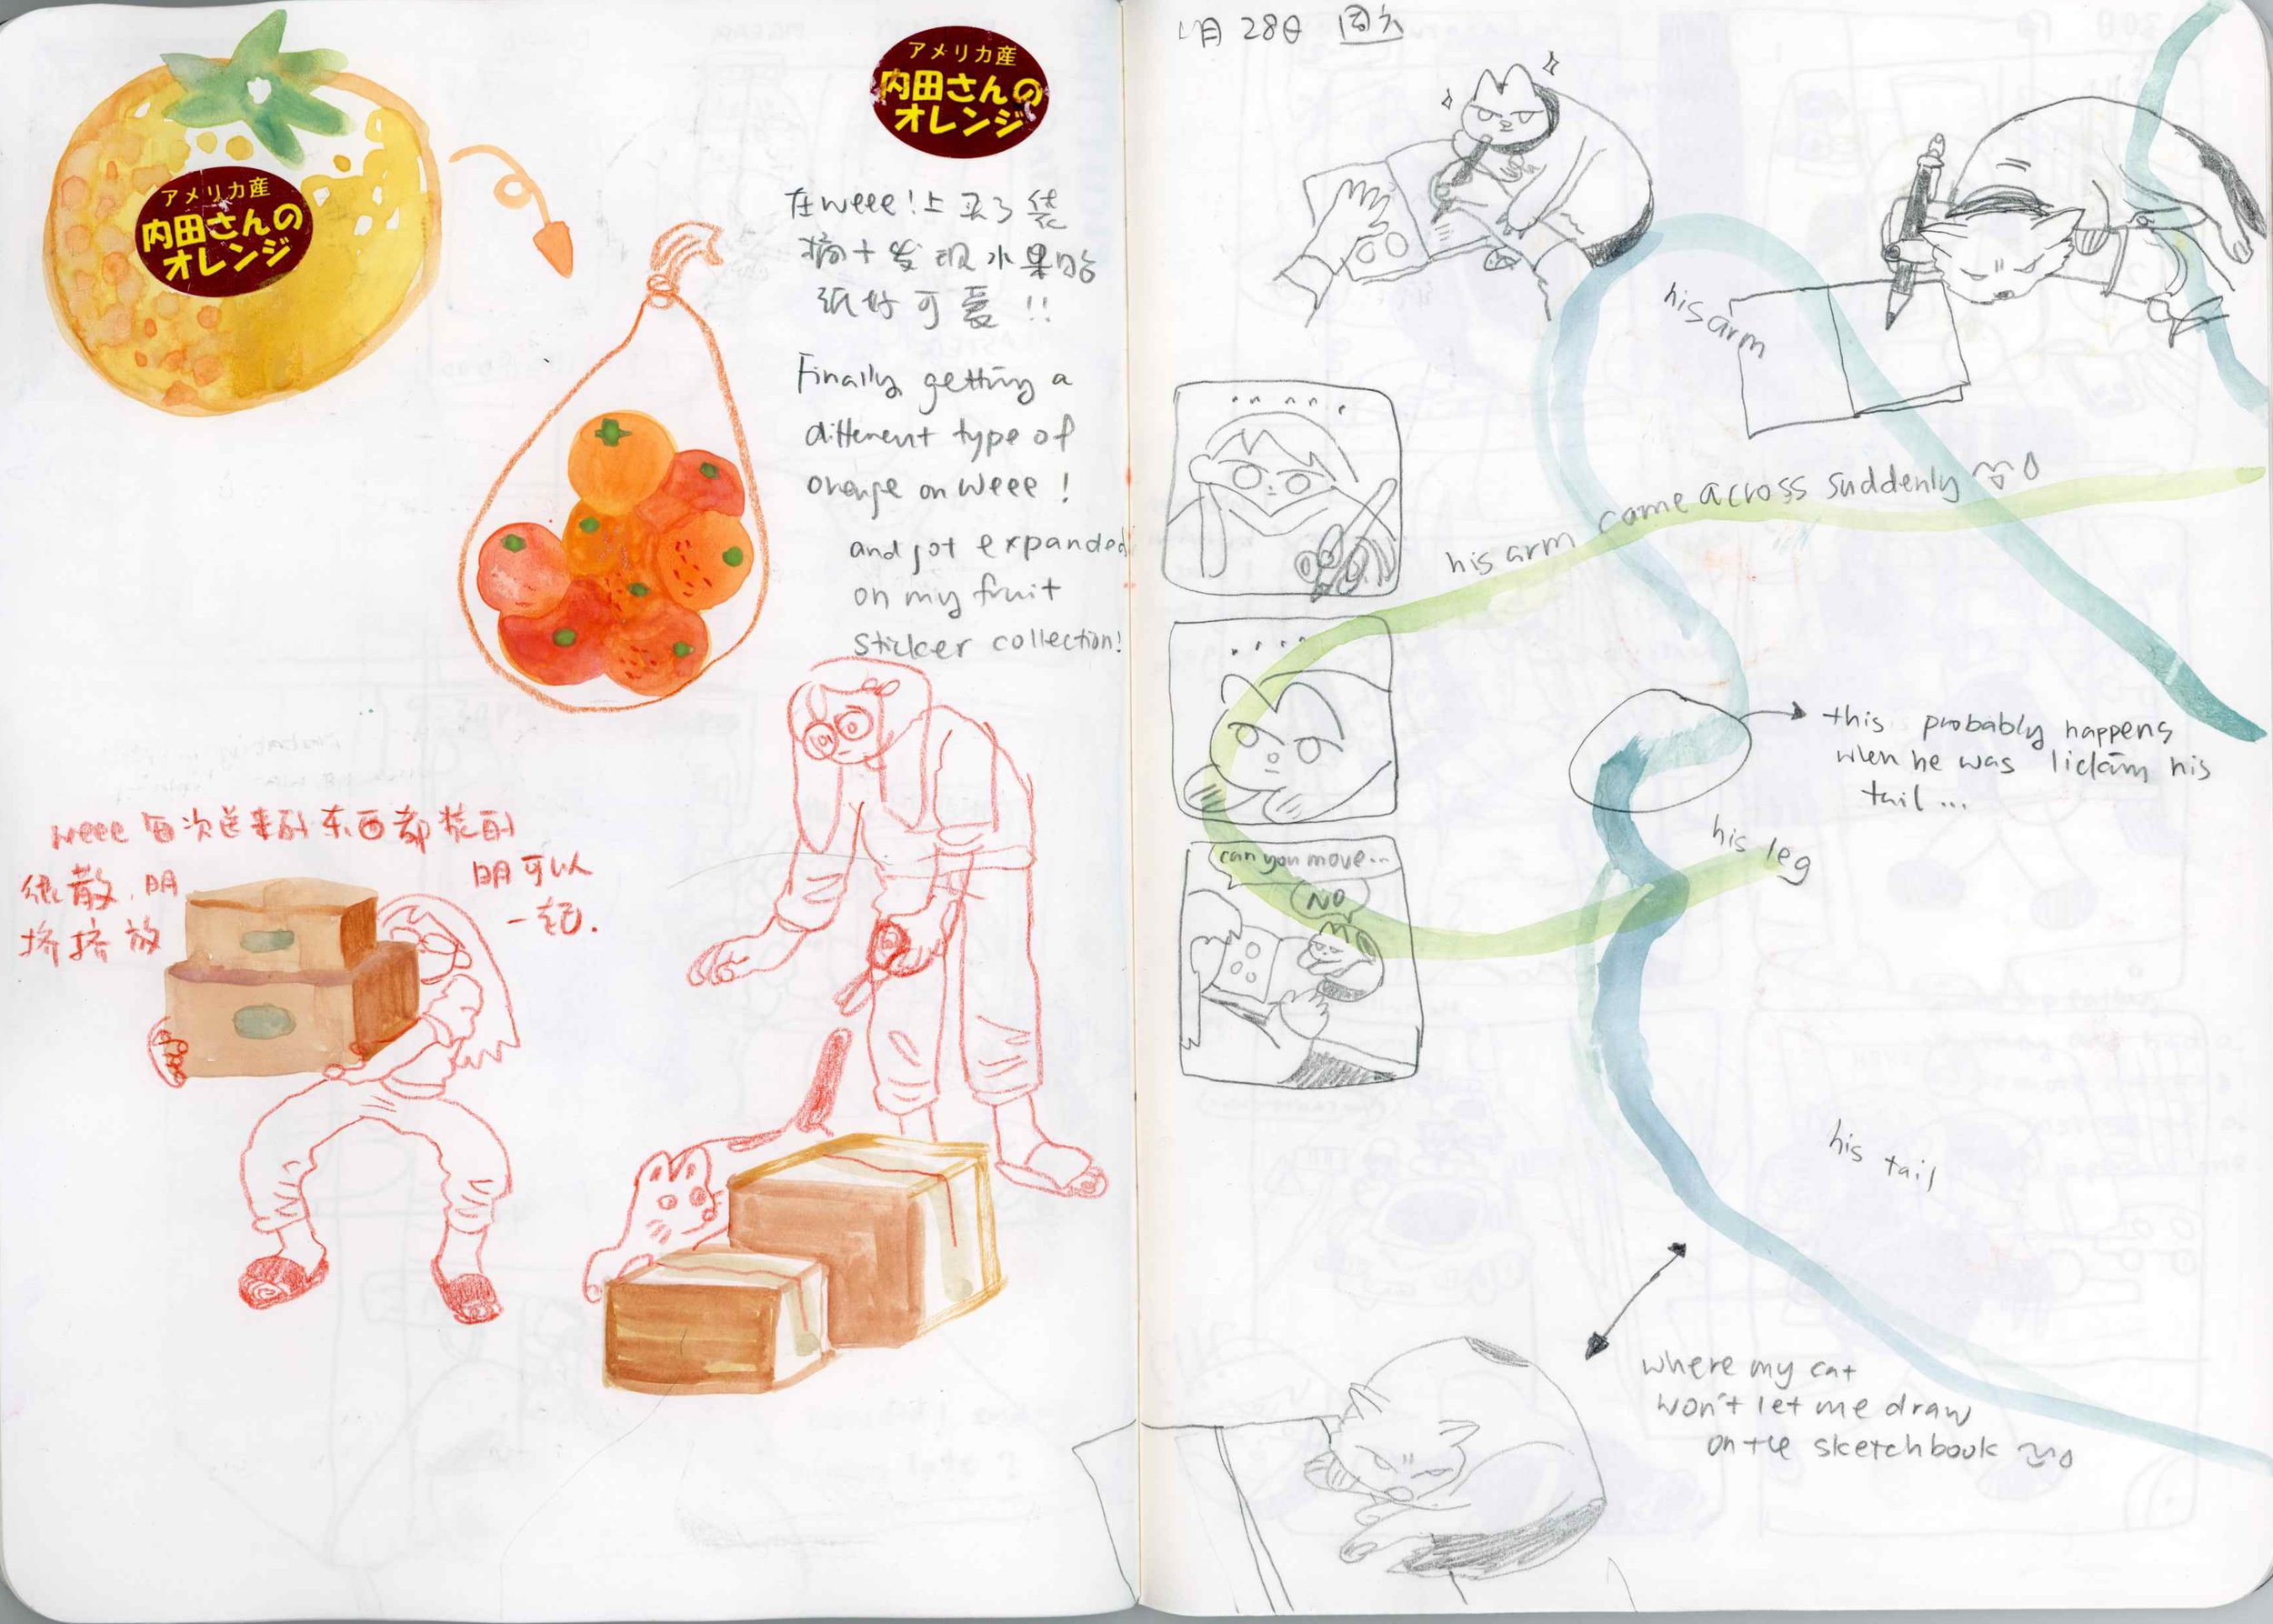 アメリカ産
内田さんの
オレンジ
アメリカ産
内田さんの
オレンジ
在weee!上买了袋
发现水果贴
纸好可爱!!
Finally getting a
different type of
orange on weee !
and got expanded
on my fruit
sticker collection!
weee 每次送来的东西都装的
很散,明
明可以
挤挤放
一起.
月 28日 周六
his arm
his arm came across suddenly
this probably happens
when he was licking his
tail...
his leg
can you move...
NO
his tail
where my cat
won't let me draw
on the sketchbook